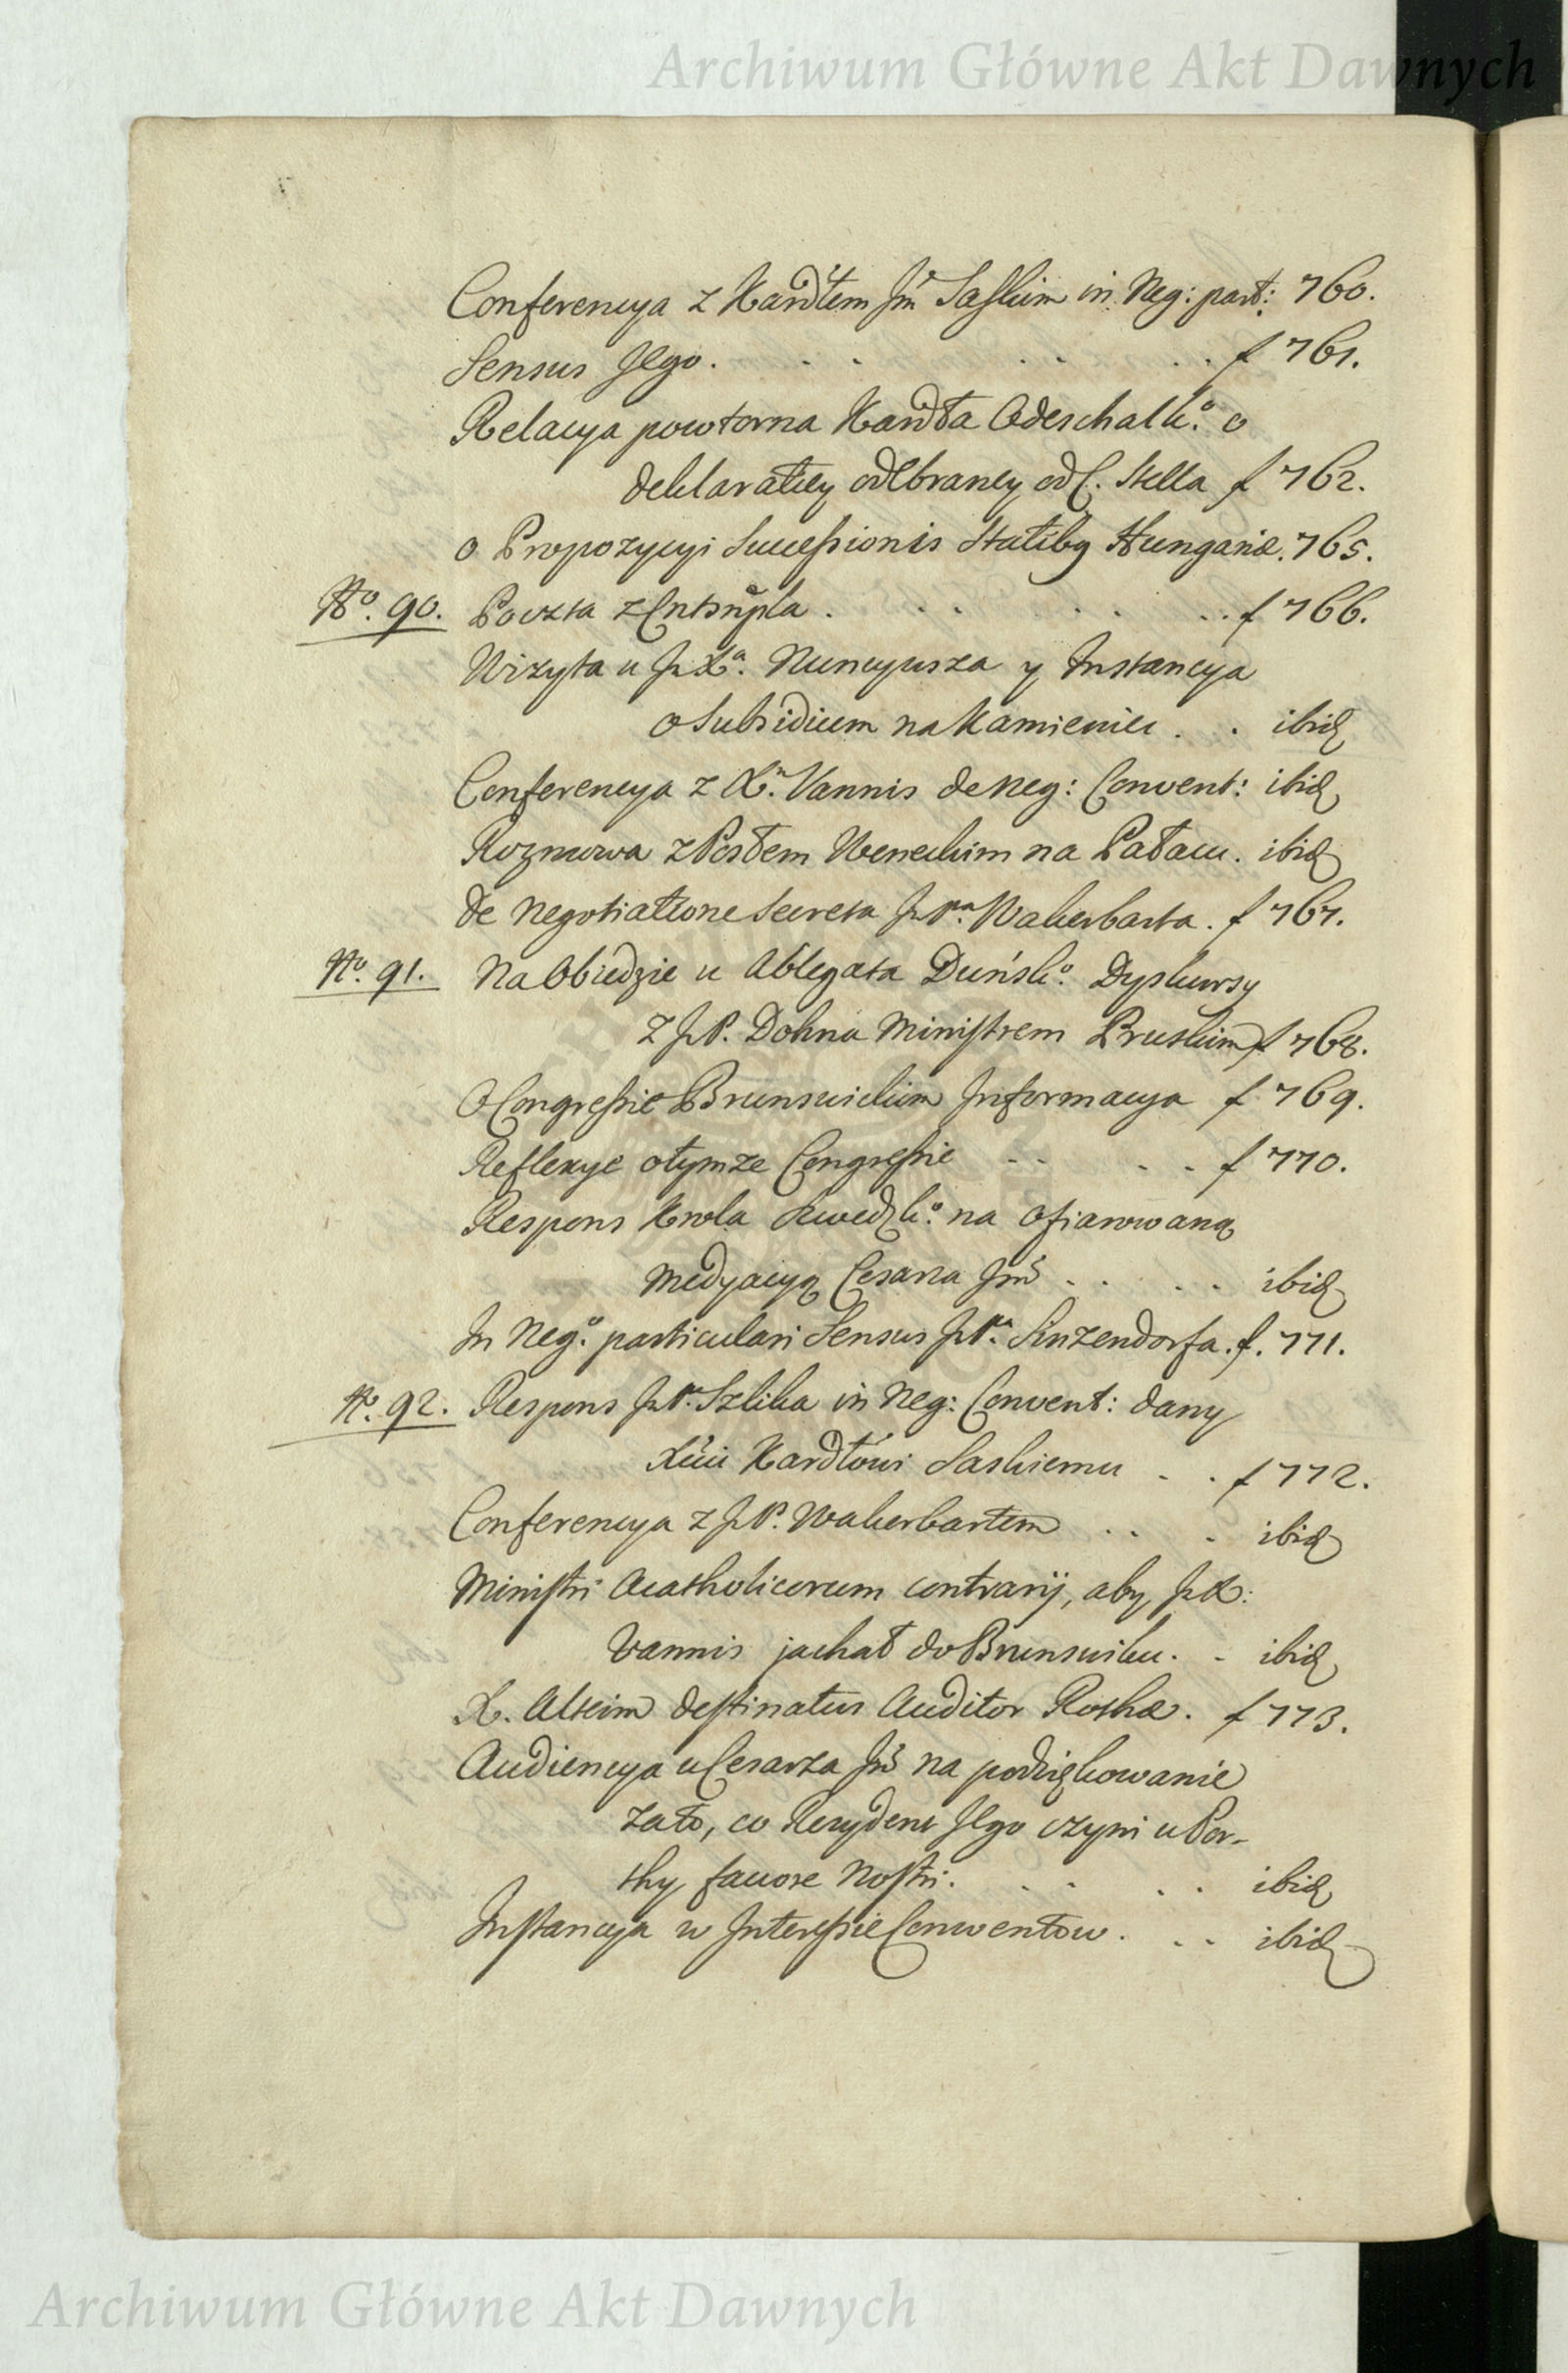 Archiwum Główne Akt Dawnych
Conferencya z Kardłem Jm Saskim in Neg: part: 760.
Sensus Jego. . . . . . . f 761.
Relacya powtorna Kardła Odeschalk:o o
deklaratiey odebraney od C. Stella f 762.
o Propozycyi Successionis Statibg Hungariæ. 765.
No. 90. Poczta z Cntsnpla . . . . . . . f 766.
Wizyta u JXa. Nuncyusza y Instancya
o Subsidium na Kamieniec . . ibid
Conferencya z Xm. Vannis de Neg: Convent: ibid
Rozmowa z Posłem Weneckim na Pałacu. ibid
de Negotiatione Secreta JPna. Wakerbarta. f 767.
No. 91. Na Obiedzie u Ablegata Duńsk:o Dyskursy
z JP. Dohna Ministrem Pruskim f 768.
O Congressie Brunswickim Informacya f 769.
Reflexye o tymze Congressie . . . . f 770.
Respons Krola Szwedzk:o na ofiarowaną
Medyacyą Cesarza Jmś . . . . ibid
In Neg:o particulari Sensus JPa. Sinzendorfa. f. 771.
No. 92. Respons JPa. Szlika in Neg: Convent: dany
Xciu Kardłowi Saskiemu . . f 772.
Conferencya z JP. Wakerbartem . . . ibid
Ministri Acatholicorum contrarij, aby JX:
Vannis jachał do Brunswiku. . ibid
X. Alteim destinatus Auditor Rothæ. f 773.
Audiencya u Cesarza Jmś na podziękowanie
za to, co Rezydent Jego czyni u Por-
thy favore Nostri. . . . . ibid
Instancya w Interessie Conwentow. . . ibid
Archiwum Główne Akt Dawnych